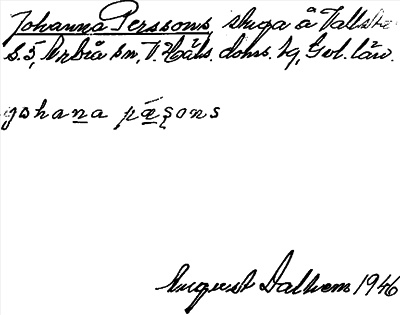 Johanna Perssons, stuga å Valls
s. 5, Årbiå sn, V. Häls. doms. hg, Gvl. län.
gohana pæʂons
August Dalhem 1946